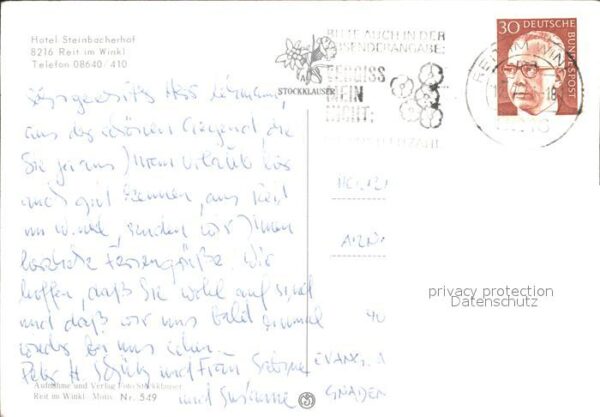 Hotel Steinbacherhof
8216 Reit im Winkl
Telefon 08640/410
BITTE AUCH IN DER
ABSENDERANGABE:
VERGISS
MEIN
NICHT:
STOCKLAUSER
REIT IM WINKL
8216
30 DEUTSCHE BUNDESPOST
Sehr geehrter Herr Lehmann,
aus der schönen Gegend, die
Sie ja aus Ihrem Urlaub her
auch gut kennen, aus Reit
im Winkl, senden wir Ihnen
herzliche Feriengrüße. Wir
hoffen, daß Sie wohl auf sind
und daß wir uns bald einmal
wieder bei uns sehen.
Peter H. Schütz und Frau
und Susanne
EVANG.
GNADEN
privacy protection
Datenschutz
Aufnahme und Verlag Foto Stocklauser
Reit im Winkl - Motiv Nr. 549